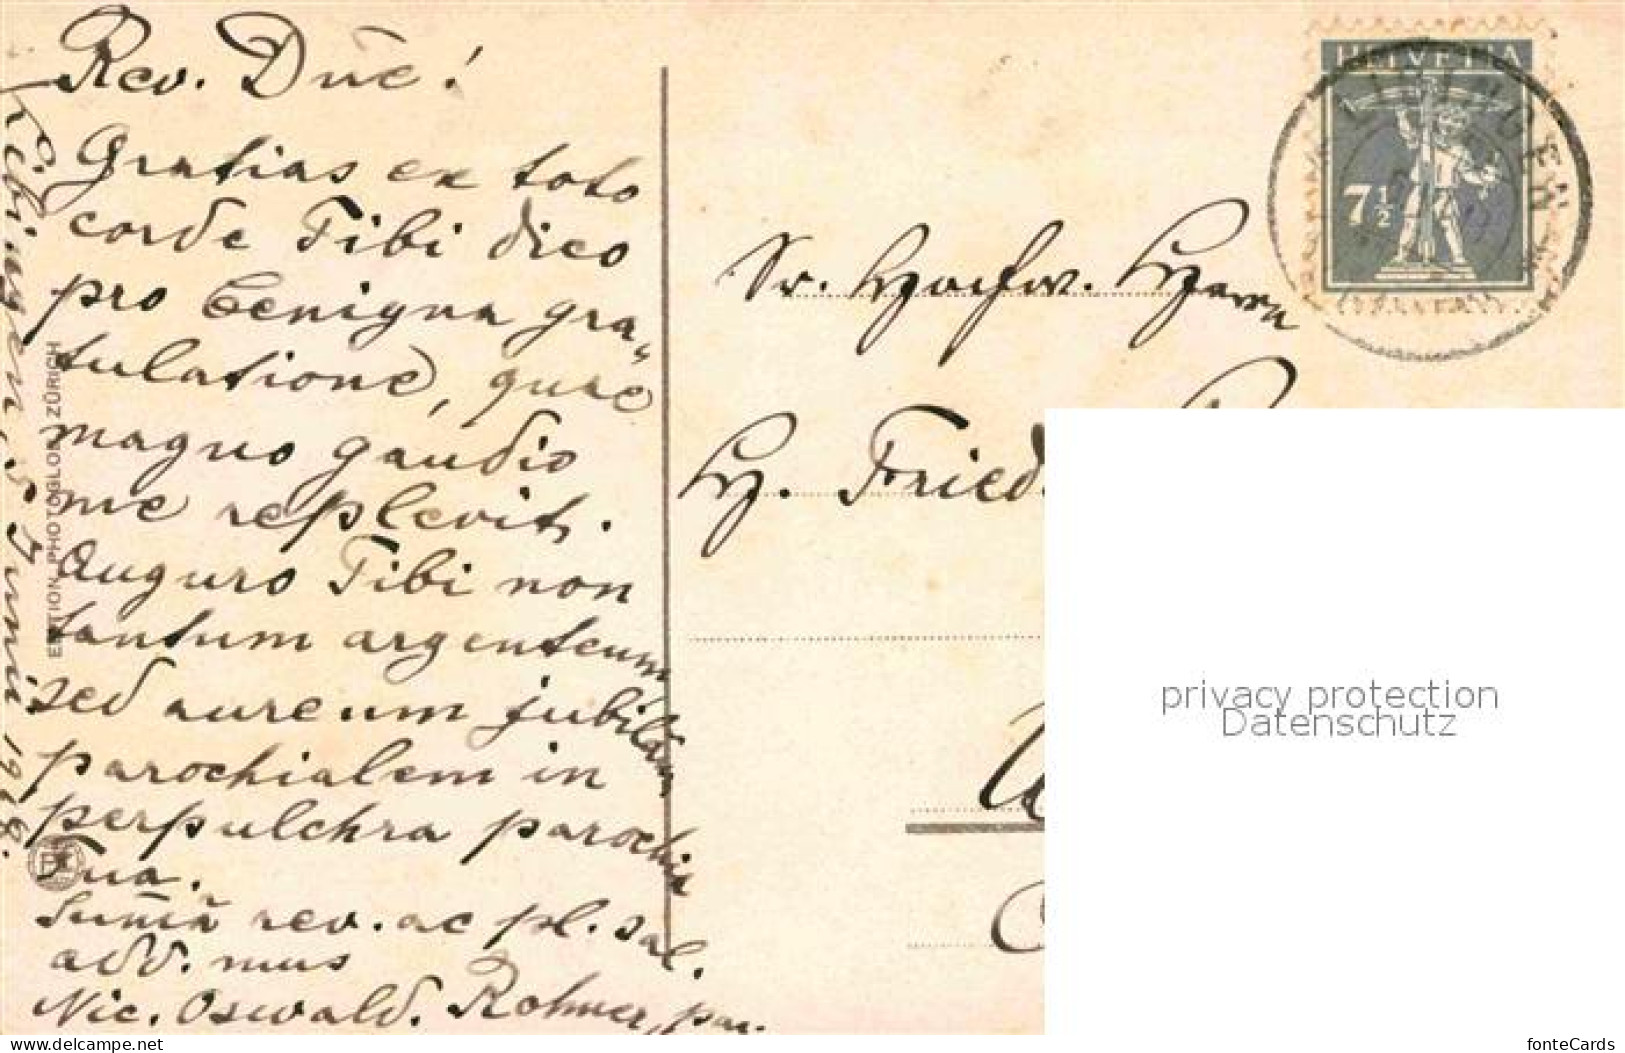 Rev. Dn̄e!
Gratias ex toto
corde Tibi dico
pro benigna gra„
tulatione, quae
magno gaudio
me replevit.
Auguro Tibi non
tantum argenteum
sed aureum jubilaeum
parochialem in
perpulchra parochia
Tua.
Sum̄a rev. ac pl. sal.
add. mus
Nic. Oswald. Rohner, par.
Juni 19
EDITION PHOTOGLOB ZÜRICH
HELVETIA
7½
Sr. Hochw. Herrn
H. Fried
privacy protection
Datenschutz
www.delcampe.net
fonteCards